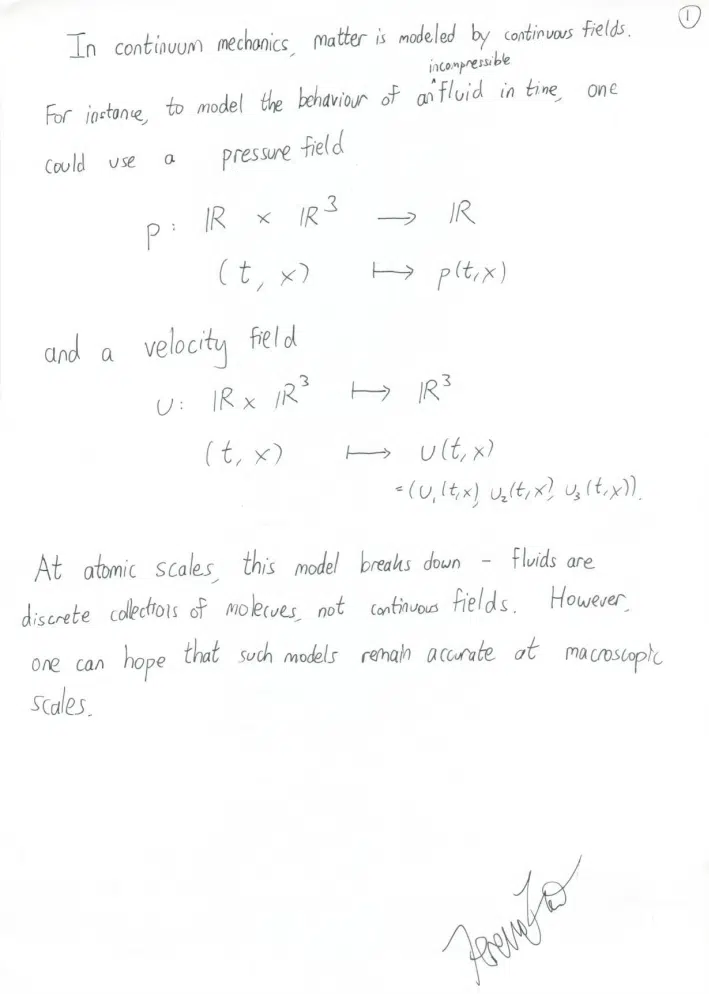 ①
In continuum mechanics, matter is modeled by continuous fields.
incompressible
For instance, to model the behaviour of an ^ fluid in time, one
could use a pressure field
p: ℝ × ℝ³ → ℝ
(t, x) ↦ p(t,x)
and a velocity field
u: ℝ × ℝ³ ↦ ℝ³
(t, x) ↦ u(t,x)
= (u₁(t,x), u₂(t,x), u₃(t,x)).
At atomic scales, this model breaks down - fluids are
discrete collections of molecues, not continuous fields. However,
one can hope that such models remain accurate at macroscopic
scales.